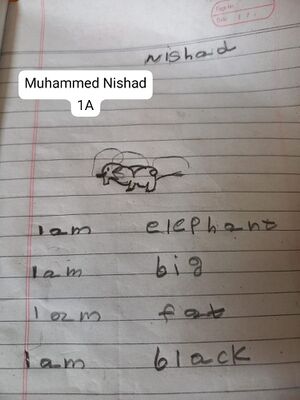 Nishad
Muhammed Nishad
1A
I am elephant
I am big
I am fat
I am black